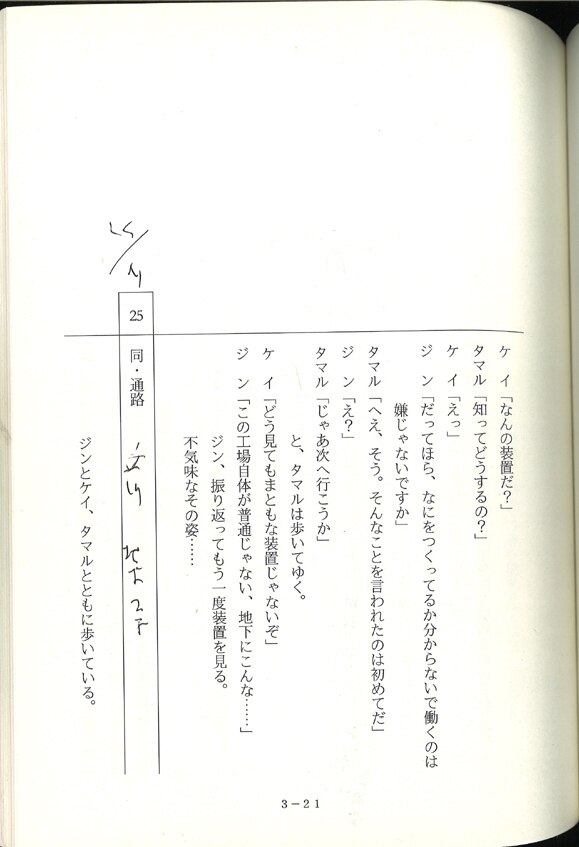 ケイ「なんの装置だ？」
タマル「知ってどうするの？」
ケイ「えっ」
ジン「だってほら、なにをつくってるか分からないで働くのは
嫌じゃないですか」
タマル「へえ、そう。そんなことを言われたのは初めてだ」
ジン「え？」
タマル「じゃあ次へ行こうか」
と、タマルは歩いてゆく。
ケイ「どう見てもまともな装置じゃないぞ」
ジン「この工場自体が普通じゃない、地下にこんな……」
ジン、振り返ってもう一度装置を見る。
不気味なその姿……
25 同・通路
ジンとケイ、タマルとともに歩いている。
3－21